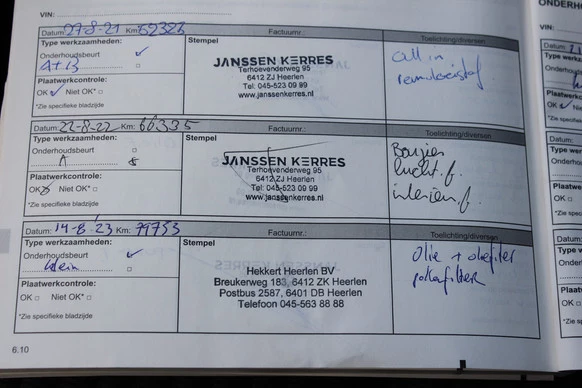 VIN:
ONDERHO
Datum: 27-8-21 Km: 52323 Factuurnr.: Toelichting/diversen
Type werkzaamheden: Stempel
Onderhoudsbeurt ✓
A+B
JANSSEN KERRES
Terhoevenderweg 95
6412 ZJ Heerlen
Tel: 045-523 09 99
www.janssenkerres.nl
all in
remvloeistof
Plaatwerkcontrole:
OK ✓ Niet OK* □
*Zie specifieke bladzijde
Datum: 22-8-22 Km: 66335 Factuurnr.: Toelichting/diversen
Type werkzaamheden: Stempel
Onderhoudsbeurt □
A
JANSSEN KERRES
Terhoevenderweg 95
6412 ZJ Heerlen
Tel: 045-523 09 99
www.janssenkerres.nl
Bougies
lucht.f.
interieur.f.
Plaatwerkcontrole:
OK Niet OK* □
*Zie specifieke bladzijde
Datum: 14-8-23 Km: 79753 Factuurnr.: Toelichting/diversen
Type werkzaamheden: Stempel
Onderhoudsbeurt ✓
klein □
Hekkert Heerlen BV
Breukerweg 183, 6412 ZK Heerlen
Postbus 2587, 6401 DB Heerlen
Telefoon 045-563 88 88
Olie + oliefilter
pollenfilter
Plaatwerkcontrole:
OK □ Niet OK* □
*Zie specifieke bladzijde
6.10